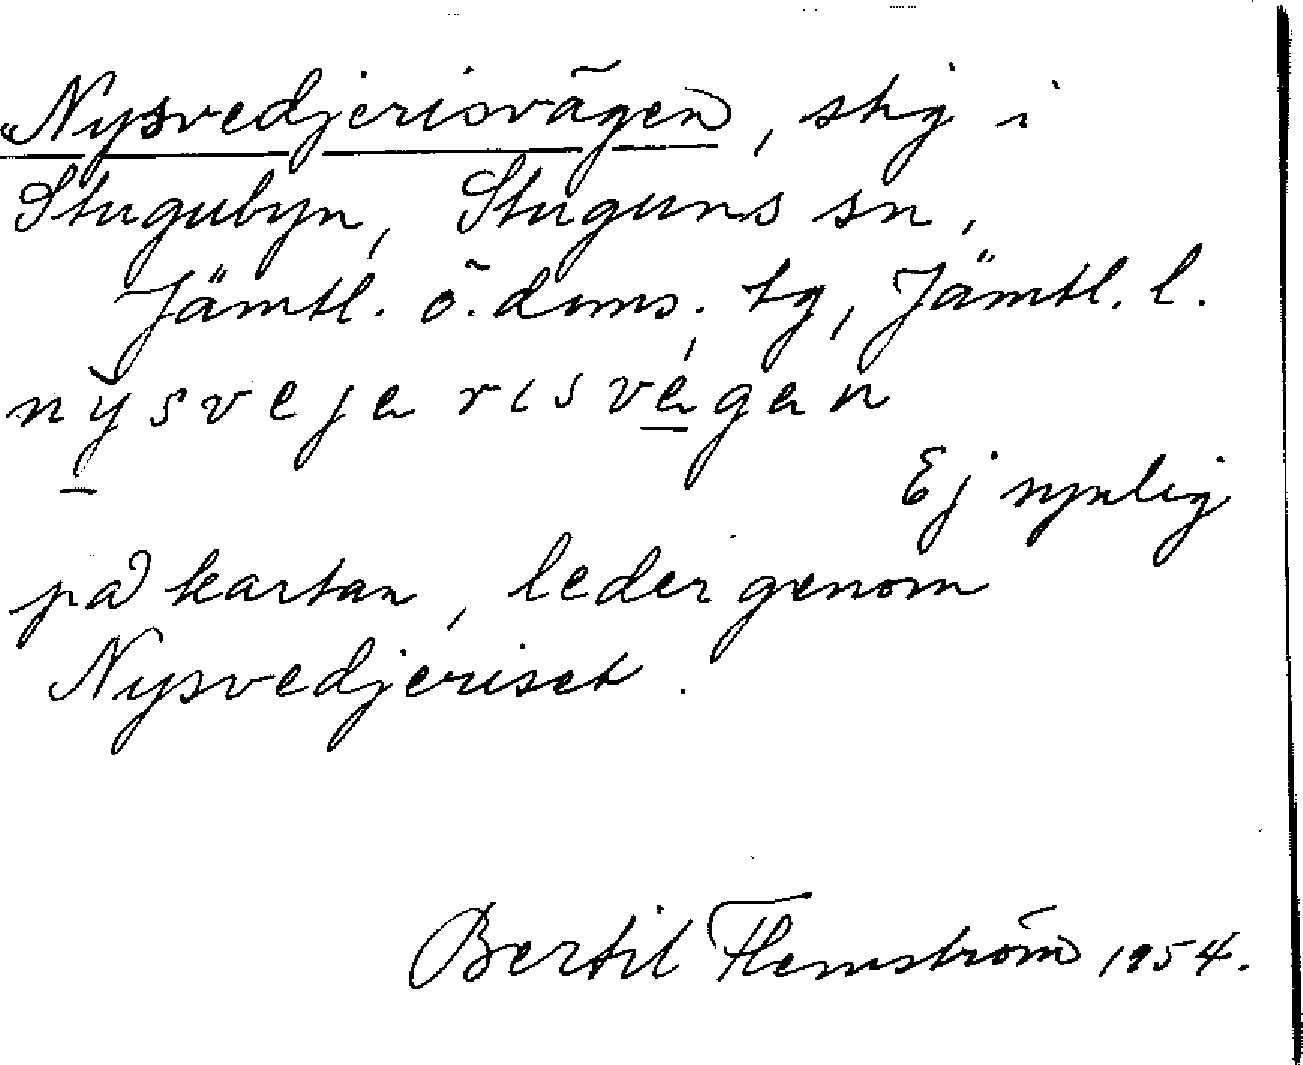 "Nysvedjerisvägen, stig i
Stugubyn, Stuguns sn,
Jämtl. ö. doms. tg, Jämtl. l.
nysveja risvegan
Ej synlig
på kartan, leder genom
Nysvedjeriset.
Bertil Flemström 1954.